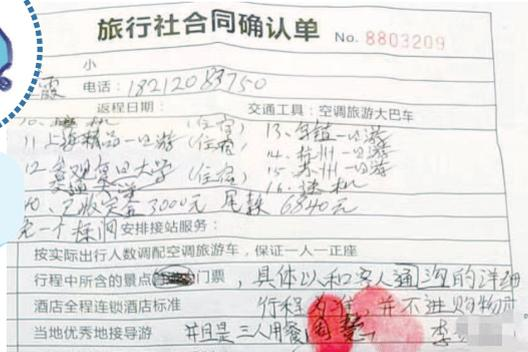 旅行社合同确认单 No. 8803209
小
霞 电话: 18212083750
返程日期: 交通工具: 空调旅游大巴车
10、接机 (住宿) 13、乌镇一日游
11、上海精品一日游 (住宿) 14、杭州一日游
12、参观复旦大学 (住宿) 15、苏州一日游
交通大学 16、送机
已收定金3000元 尾款6840元
一个标间 安排接站服务:
按实际出行人数调配空调旅游车, 保证一人一正座
行程中所含的景点 门票, 具体以和客人通沟的详细
酒店全程连锁酒店标准 行程为准, 并不进购物店
当地优秀地接导游 并且是三人用餐 李